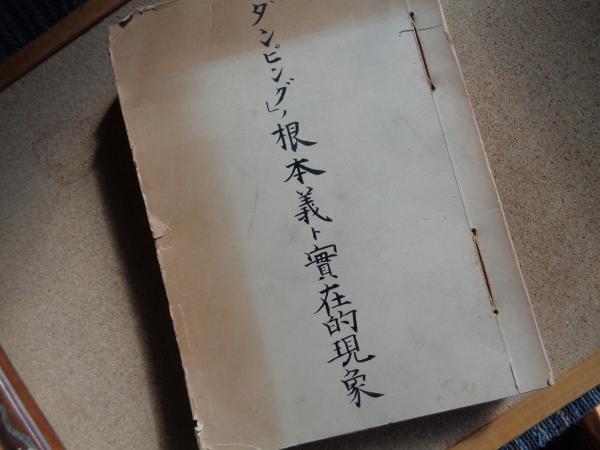 「ダンピング」ノ根本義ト實在的現象